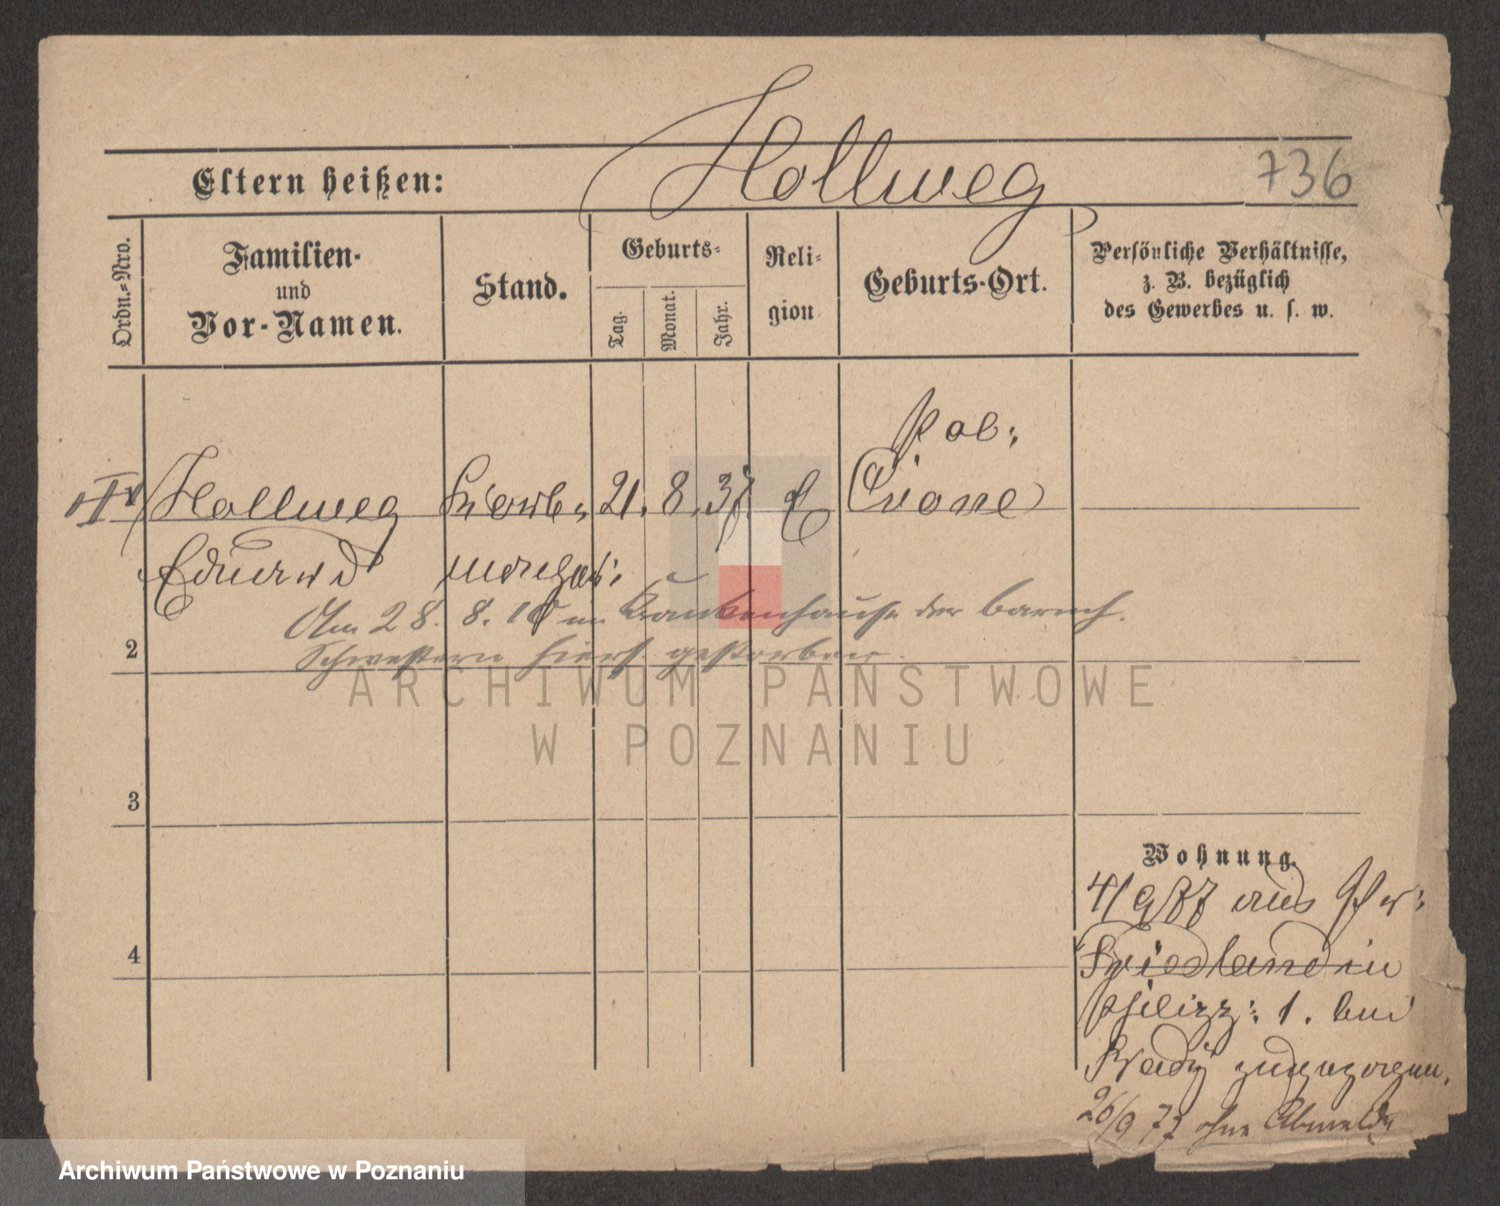 Hollweg
736
Eltern heißen:
Ordn.-Nro.
Familien-
und
Vor-Namen.
Stand.
Geburts-
Tag.
Monat.
Jahr.
Reli-
gion
Geburts-Ort.
Persönliche Verhältnisse,
z. B. bezüglich
des Gewerbes u. s. w.
Hollweg 21. 8. 37. E Crone
Eduard
Am 28. 8. im Krankenhause der barmh.
Schwestern hiers. gestorben.
2
3
4
Wohnung.
4/9 77 aus Pr:
Friedland in
1. bei
zugezogen,
26/9 77 ohne Abmeldg
ARCHIWUM PAŃSTWOWE
W POZNANIU
Archiwum Państwowe w Poznaniu